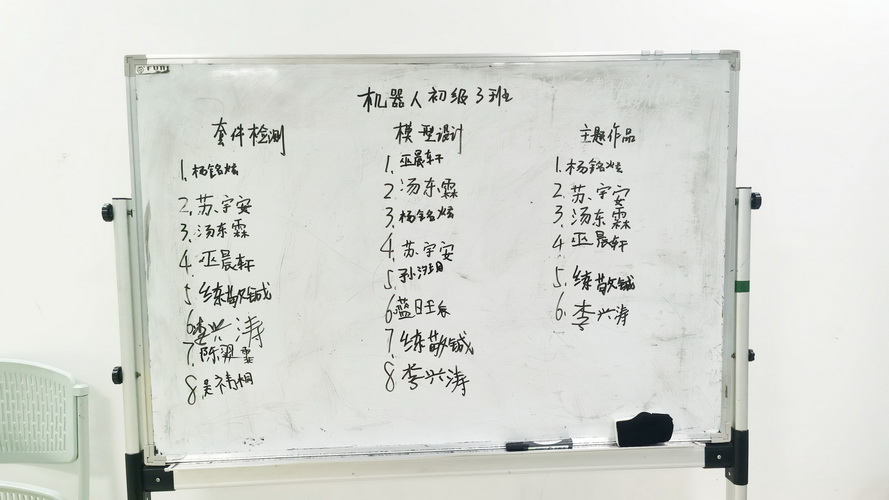 机器人初级3班
套件检测
1.杨铭炫
2.苏宇安
3.汤东霖
4.巫晨轩
5.练敬铖
6.李兴涛
7.陈羽
8.吴祎桐
模型设计
1.巫晨轩
2.汤东霖
3.杨铭炫
4.苏宇安
5.孙
6.蓝日
7.练敬铖
8.李兴涛
主题作品
1.杨铭炫
2.苏宇安
3.汤东霖
4.巫晨轩
5.练敬铖
6.李兴涛